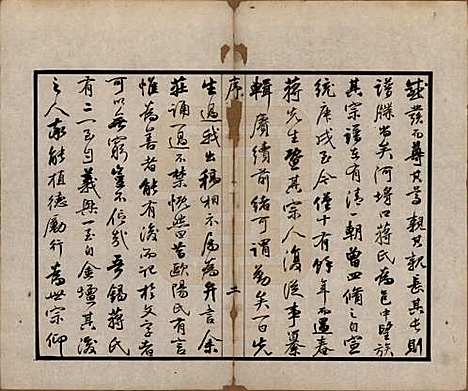 發而尊其尊親其親長其長則
譜牒尚矣河埒口蔣氏為邑中望族
其宗譜在有清一朝曾四修之自宣
統庚戌至今僅十有餘年而選春
蔣先生暨其宗人復從事纂
輯賡續前緒可謂勤矣百先
序
二
生過我出稿相示屬為弁言余
莊誦一過不禁慨然曰昔歐陽氏有言
惟為善者能有後而記於文字者
可以無窮豈不信哉吾錫蔣氏
有二一曰義興一曰金壇其後
之人類能植德勵行為世宗仰